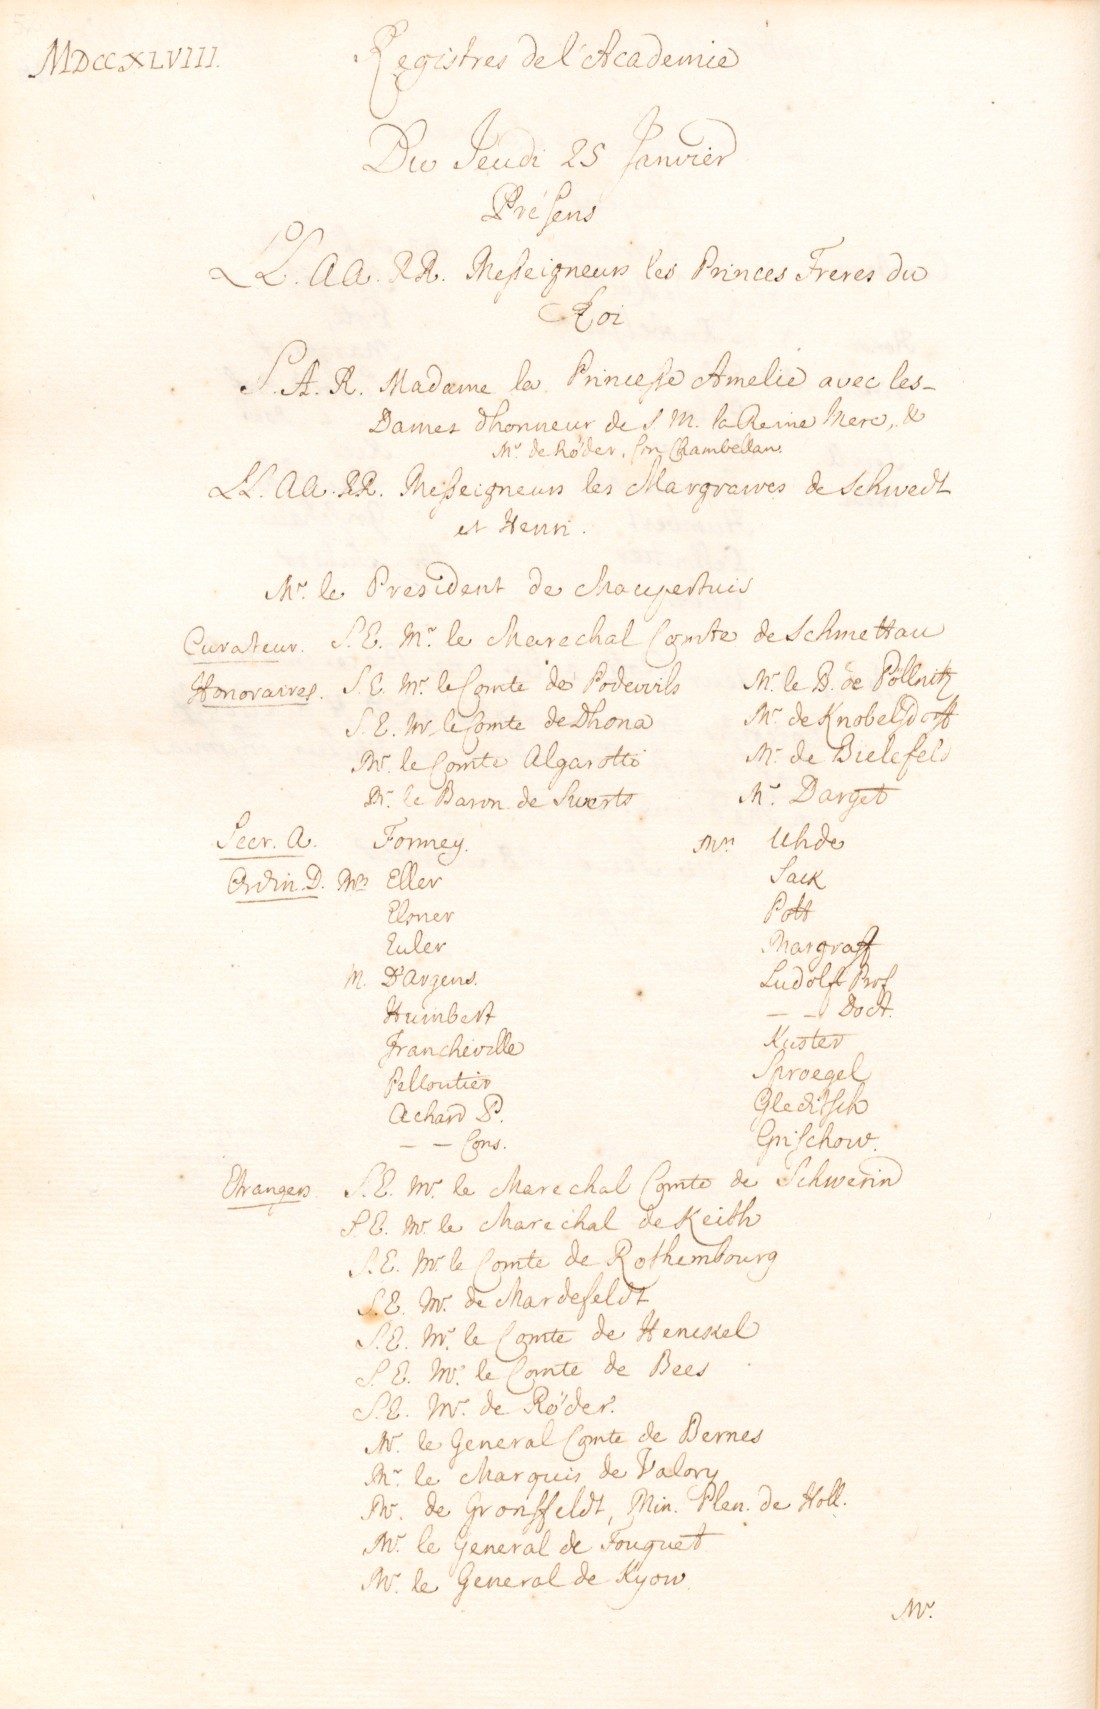 MDCCXLVIII.
Registres de l'Academie
Du Jeudi 25 Janvier
Présens
LL. AA. RR. Messeigneurs les Princes Freres du
Roi
S. A. R. Madame la Princesse Amelie avec les
Dames dhonneur de S. M. la Reine Mere, &
Mr. de Röder, son Chambellan.
LL. AA. RR. Messeigneurs les Margraves de Schwedt
et Henri.
Mr. le President de Maupertuis
Curateur. S. E. Mr. le Marechal Comte de Schmettau
Honoraires. S. E. Mr. le Comte de Podewils Mr. le B. de Pöllnitz
S. E. Mr. le Comte de Dhona Mr. de Knobelsdoff
Mr. le Comte Algarotti Mr. de Bielefeld
Mr. le Baron de Swerts Mr. Darget
Secr. A. Formey. Mrs Uhde
Ordin. D. Mrs Eller Sack
Elsner Pott
Euler Margraff
M. D'Argens. Ludolff Prof
Humbert — — Doct.
Francheville Kuster
Pelloutier Sproegel
Achard P. Gleditsch
— — Cons. Grischow.
Etrangers S. E. Mr. le Marechal Comte de Schwerin
S. E. Mr. le Marechal de Keith
S. E. Mr. le Comte de Rothembourg
S. E. Mr. de Mardefeldt
S. E. Mr. le Comte de Henckel
S. E. Mr. le Comte de Bees
S. E. Mr. de Röder.
Mr. le General Comte de Bernes
Mr. le Marquis de Valory
Mr. de Gronsfeldt, Min. Plen. de Holl.
Mr. le General de Fouquet
Mr. le General de Kyow.
Mr.